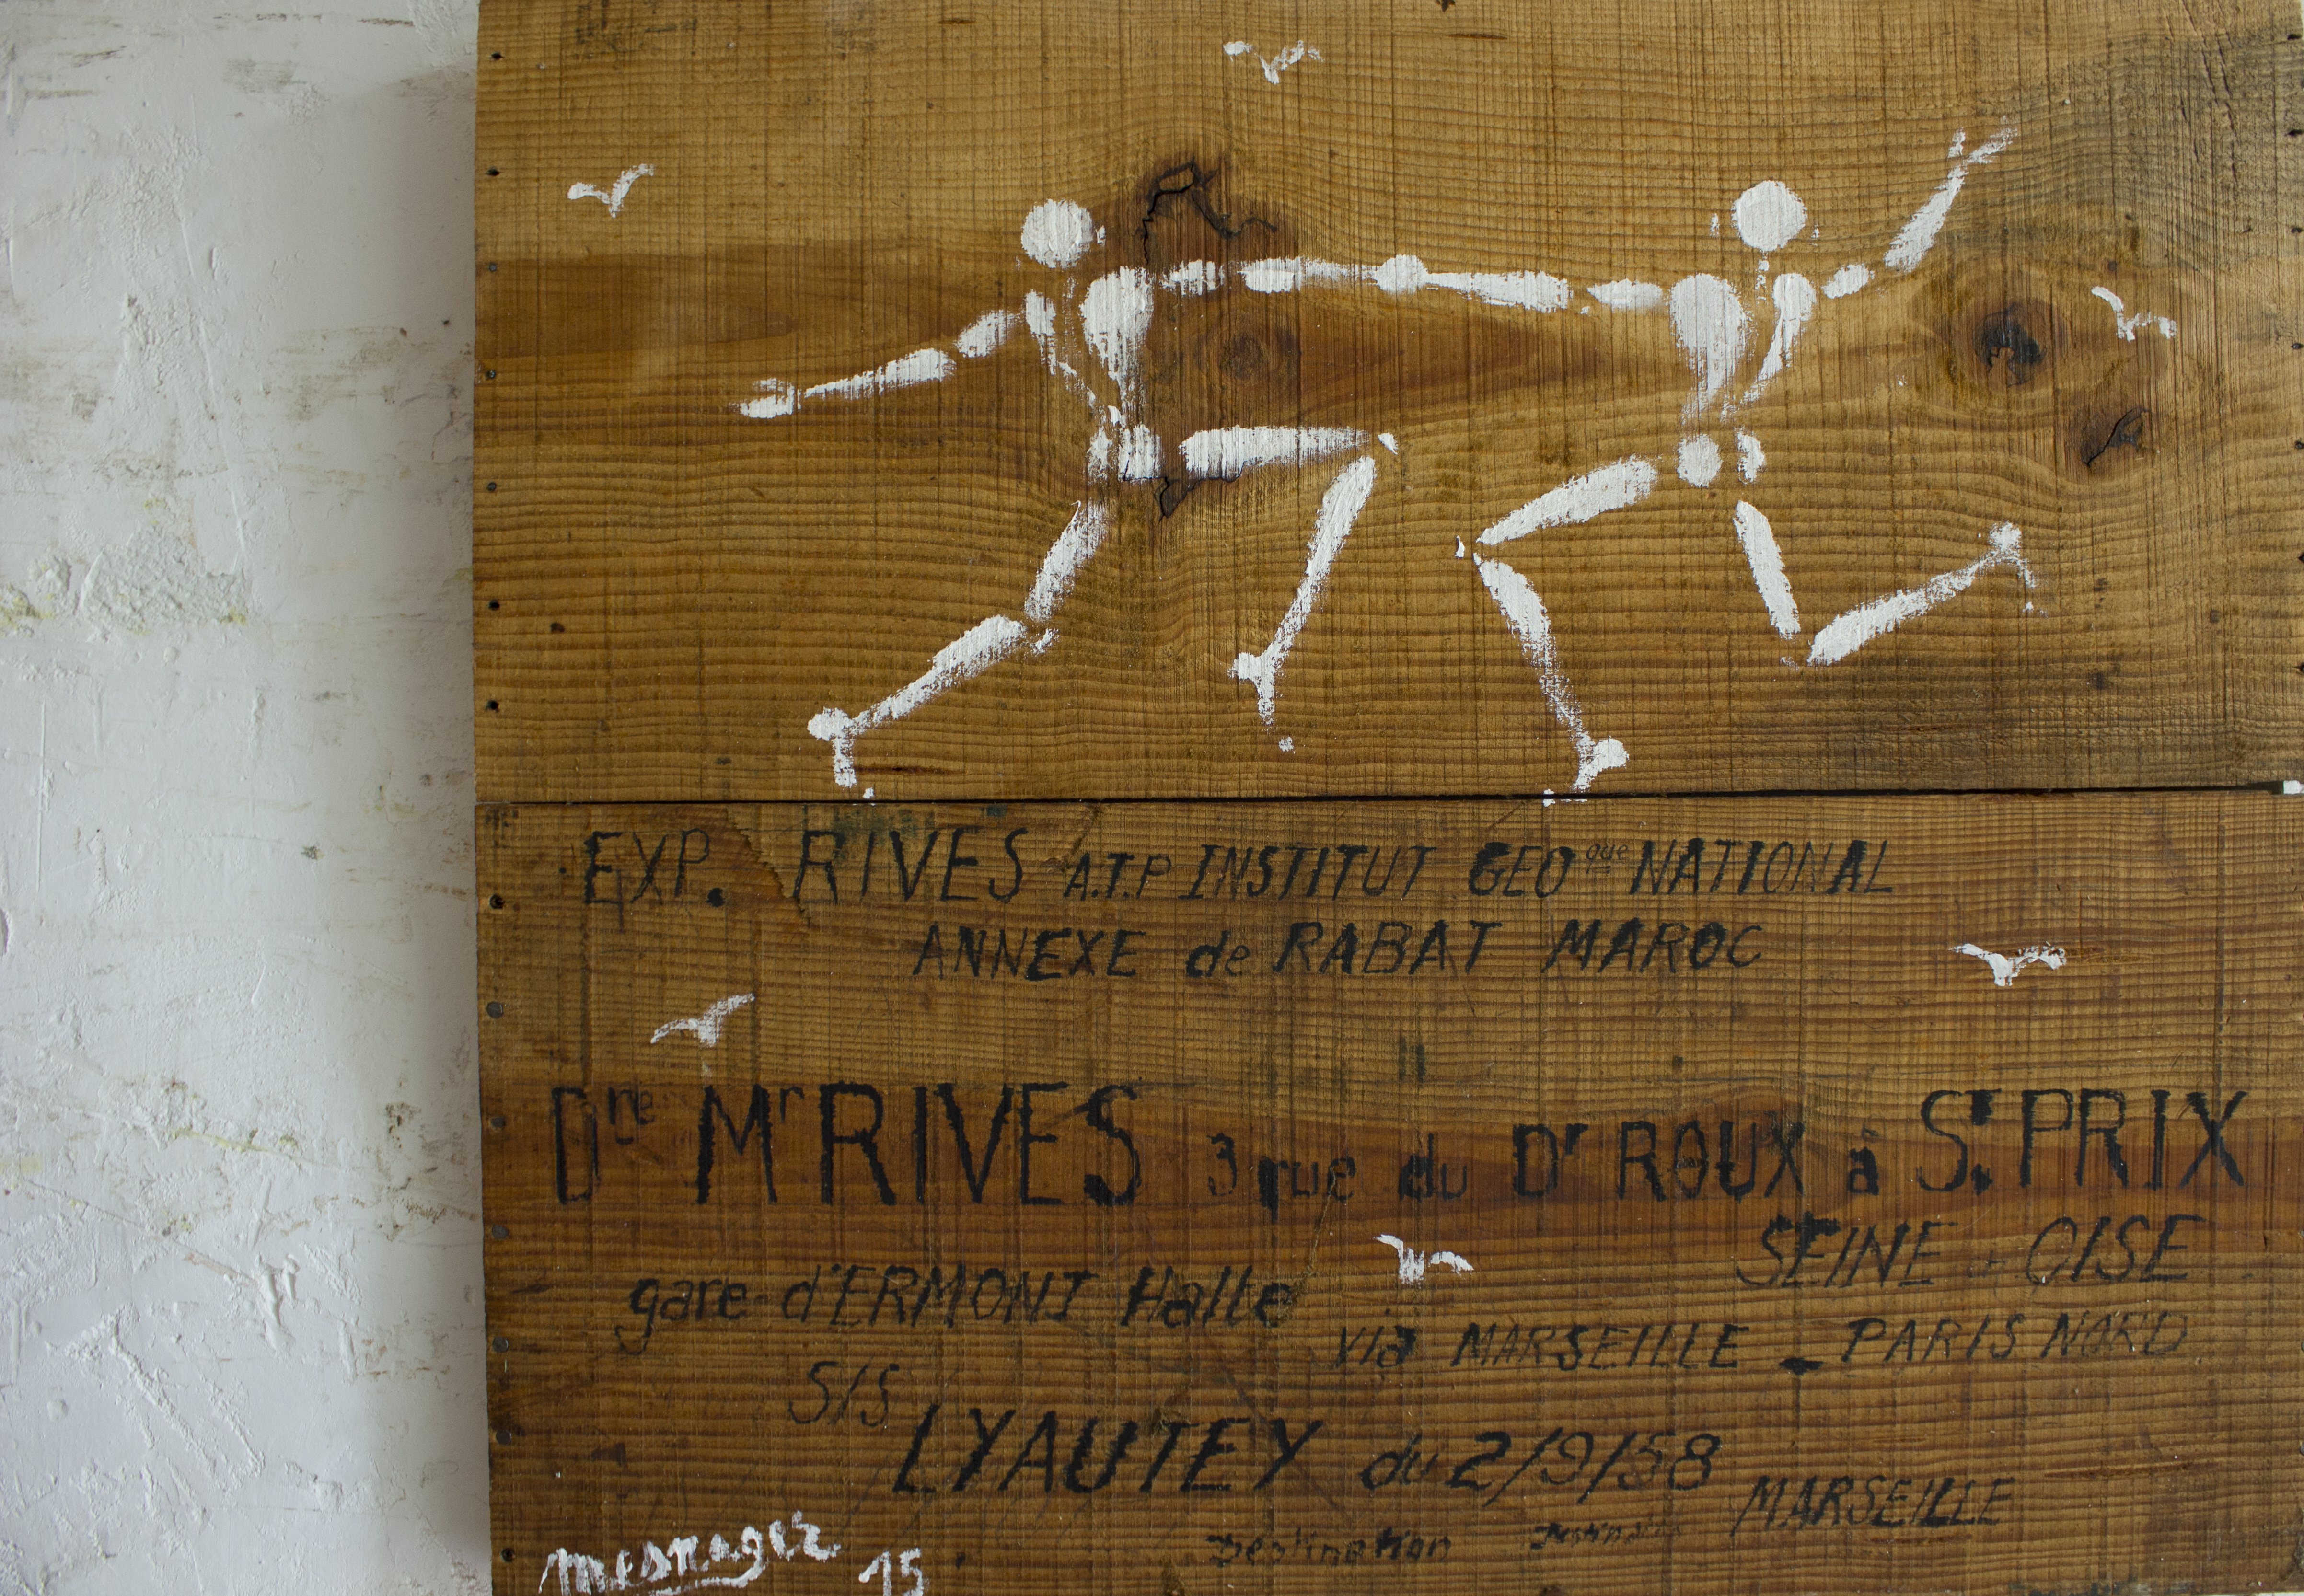 EXP. RIVES A.T.P INSTITUT GEOque NATIONAL
ANNEXE de RABAT MAROC
Dre Mr RIVES 3 rue du Dr ROUX à St. PRIX
SEINE - OISE
gare d'ERMONT Halte
via MARSEILLE - PARIS NORD
S/S LYAUTEY du 2/9/58
MARSEILLE
Destination
mesnager 15